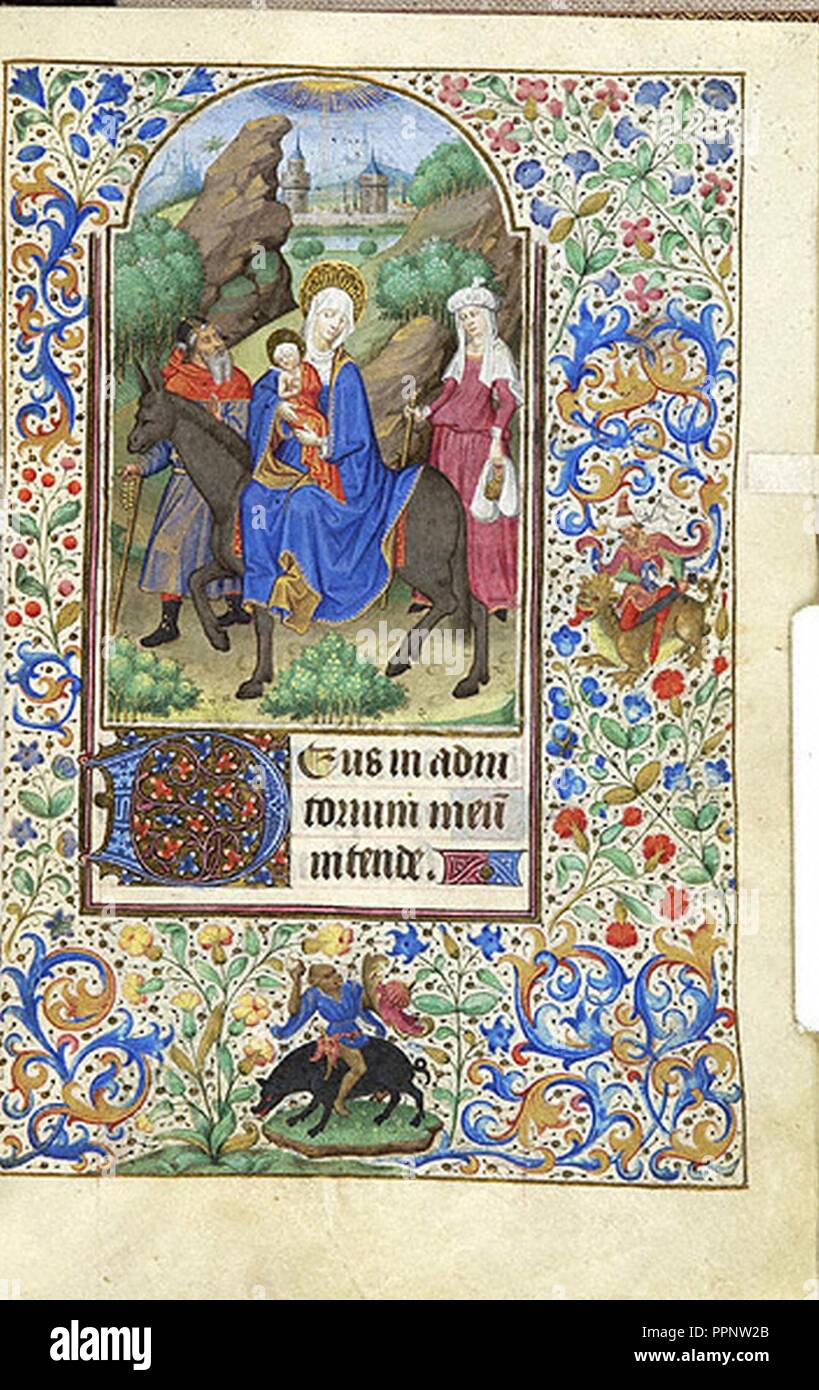 Deus in adiu
torium meū
intende.
alamy
Image ID: PPNW2B
www.alamy.com